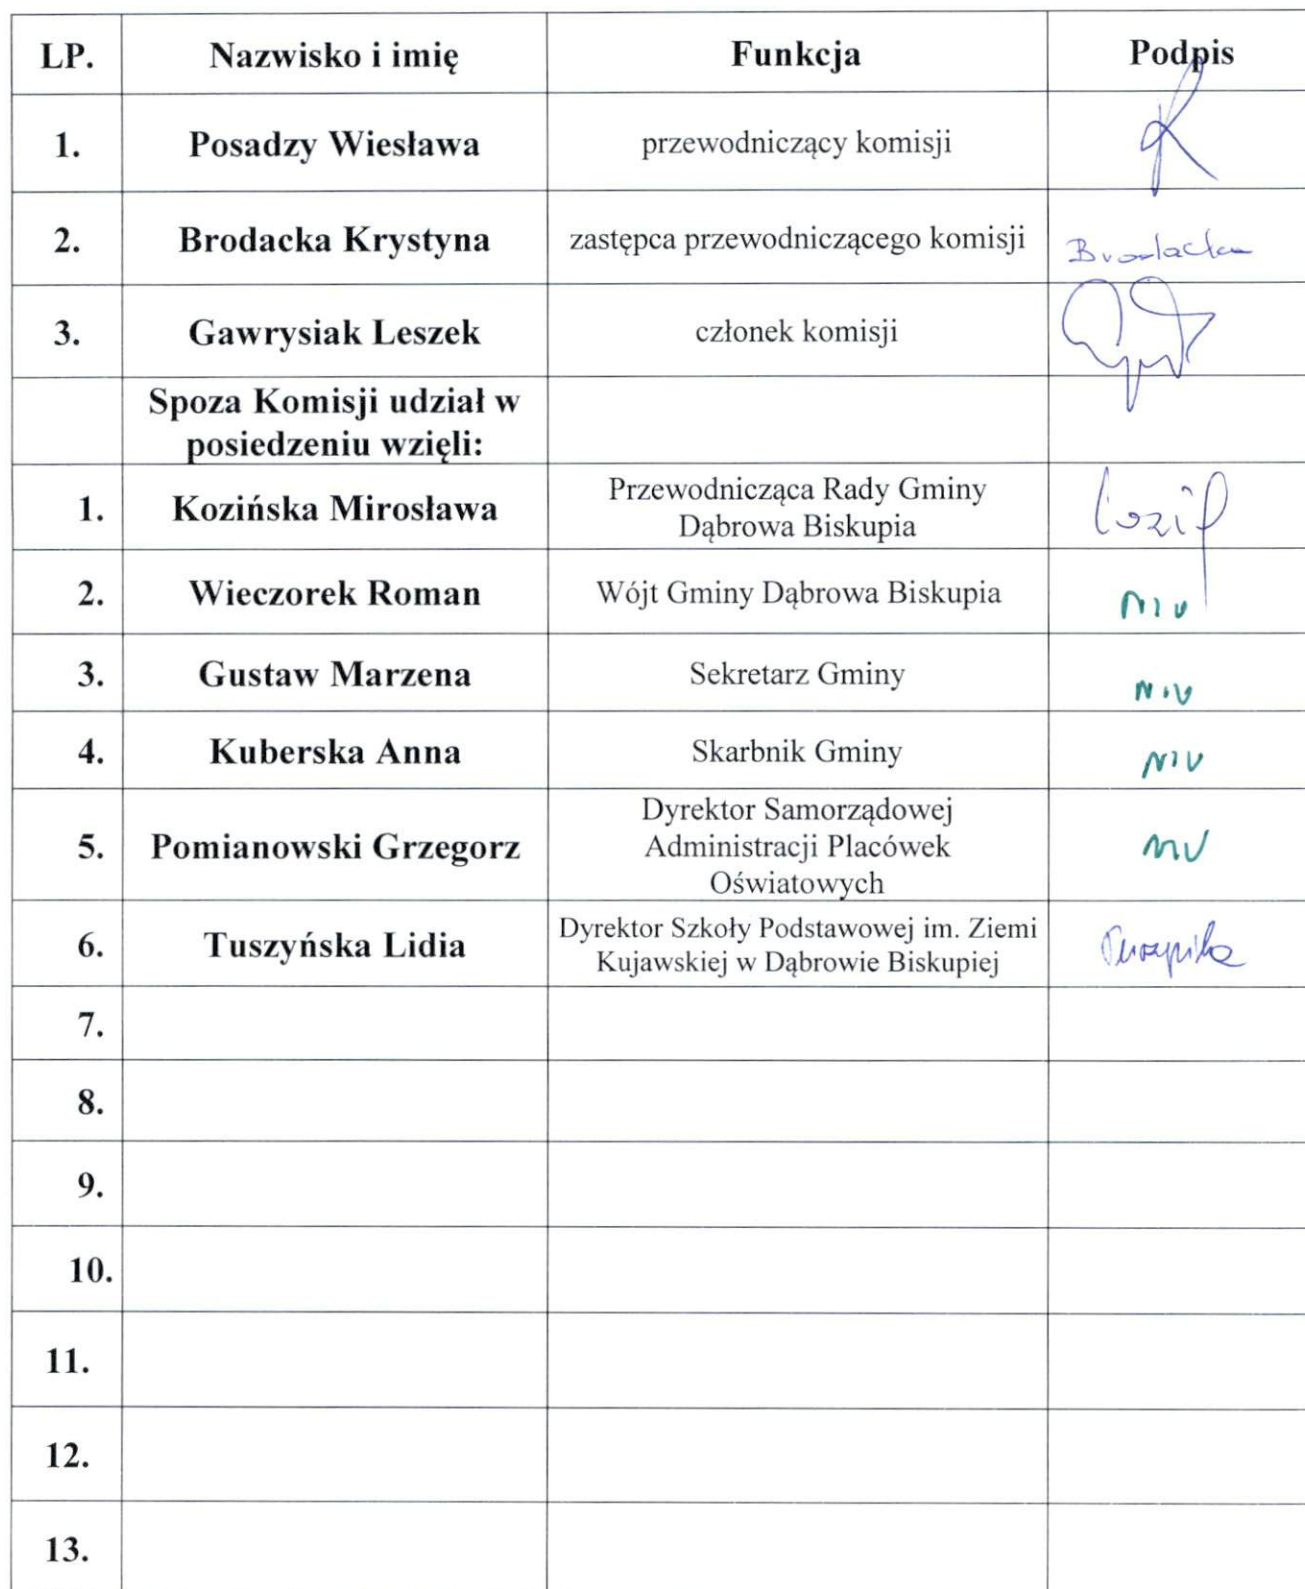 LP. Nazwisko i imię Funkcja Podpis
1. Posadzy Wiesława przewodniczący komisji
2. Brodacka Krystyna zastępca przewodniczącego komisji Brodacka
3. Gawrysiak Leszek członek komisji
Spoza Komisji udział w
posiedzeniu wzięli:
1. Kozińska Mirosława Przewodnicząca Rady Gminy
Dąbrowa Biskupia
2. Wieczorek Roman Wójt Gminy Dąbrowa Biskupia
3. Gustaw Marzena Sekretarz Gminy
4. Kuberska Anna Skarbnik Gminy
5. Pomianowski Grzegorz Dyrektor Samorządowej
Administracji Placówek
Oświatowych
6. Tuszyńska Lidia Dyrektor Szkoły Podstawowej im. Ziemi
Kujawskiej w Dąbrowie Biskupiej
7.
8.
9.
10.
11.
12.
13.